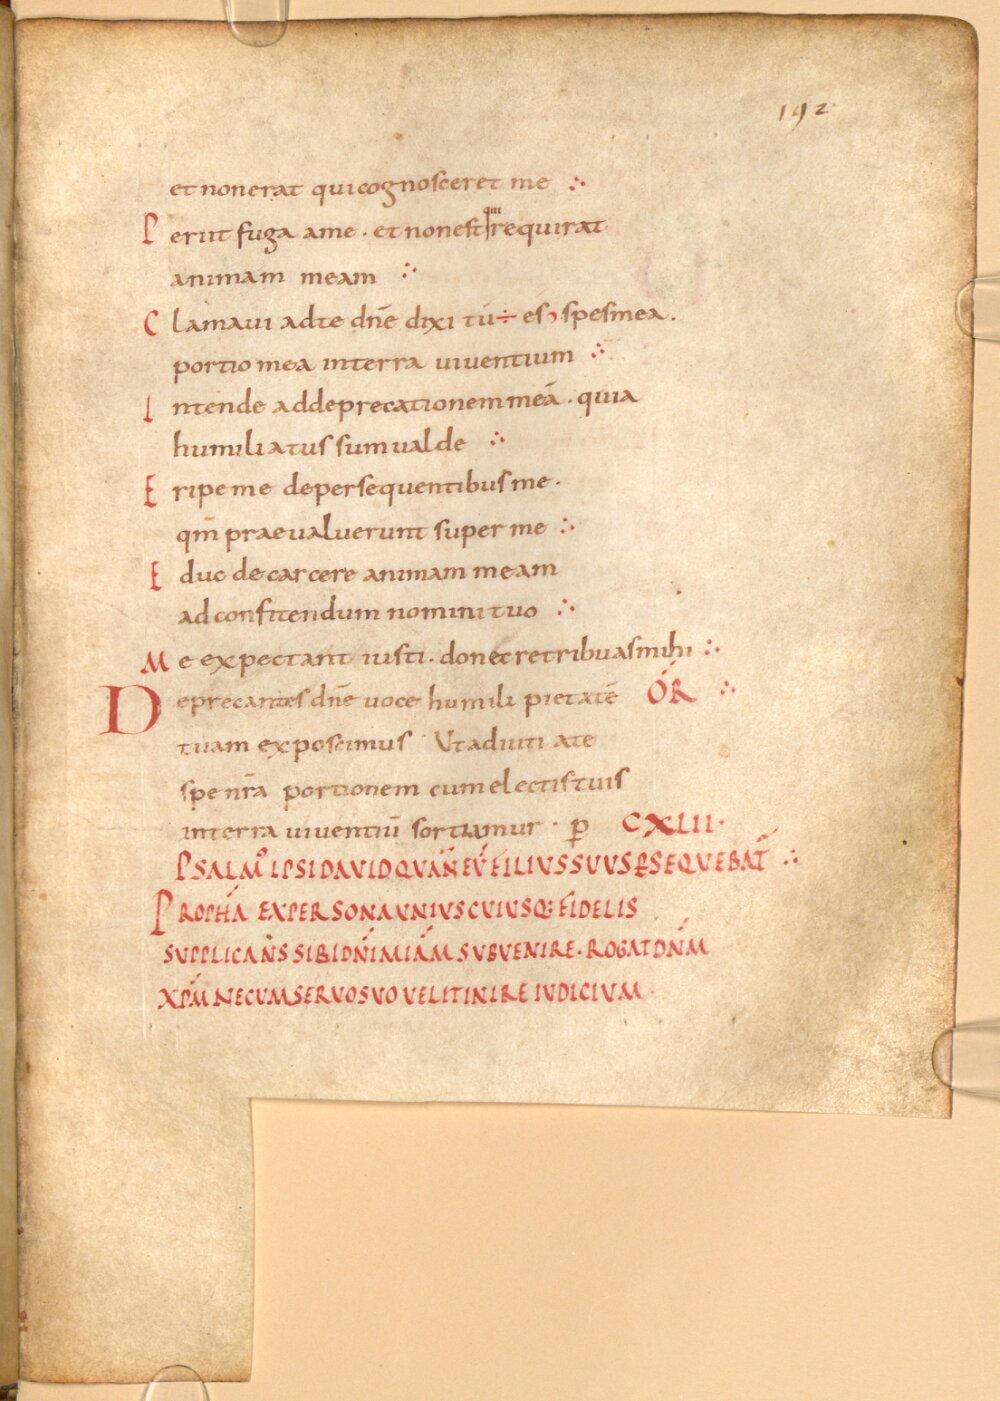 192
et non erat qui cognosceret me
Periit fuga a me. et non est qui requirat
animam meam
Clamavi ad te dñe dixi tú ÷ es, spes mea.
portio mea in terra viventium
Intende ad deprecationem meā. quia
humiliatus sum valde
Eripe me de persequentibus me.
qm̄ praevaluerunt super me
Educ de carcere animam meam
ad confitendum nomini tuo
Me expectant iusti. donec retribuas mihi
Deprecantes dñe voce humili pietatē ÓR
tuam exposcimus Ut aditi ate
spe nr̄a portionem cum electis tuis
in terra viventiū sortiamur. p̄ CXLII.
PSALM̊ IPSI DAVID QUAÑ EŪ FILIUS SUUS PSEQUEBAT̄
PROPHÍA EX PERSONA UNIUSCUIUSQ: FIDELIS
SUPPLICANS SIBI DÑI MIĀM SUBVENIRE. ROGAT DÑM
XP̄M NE CUM SERVO SUO VELIT INIRE IUDICIUM.